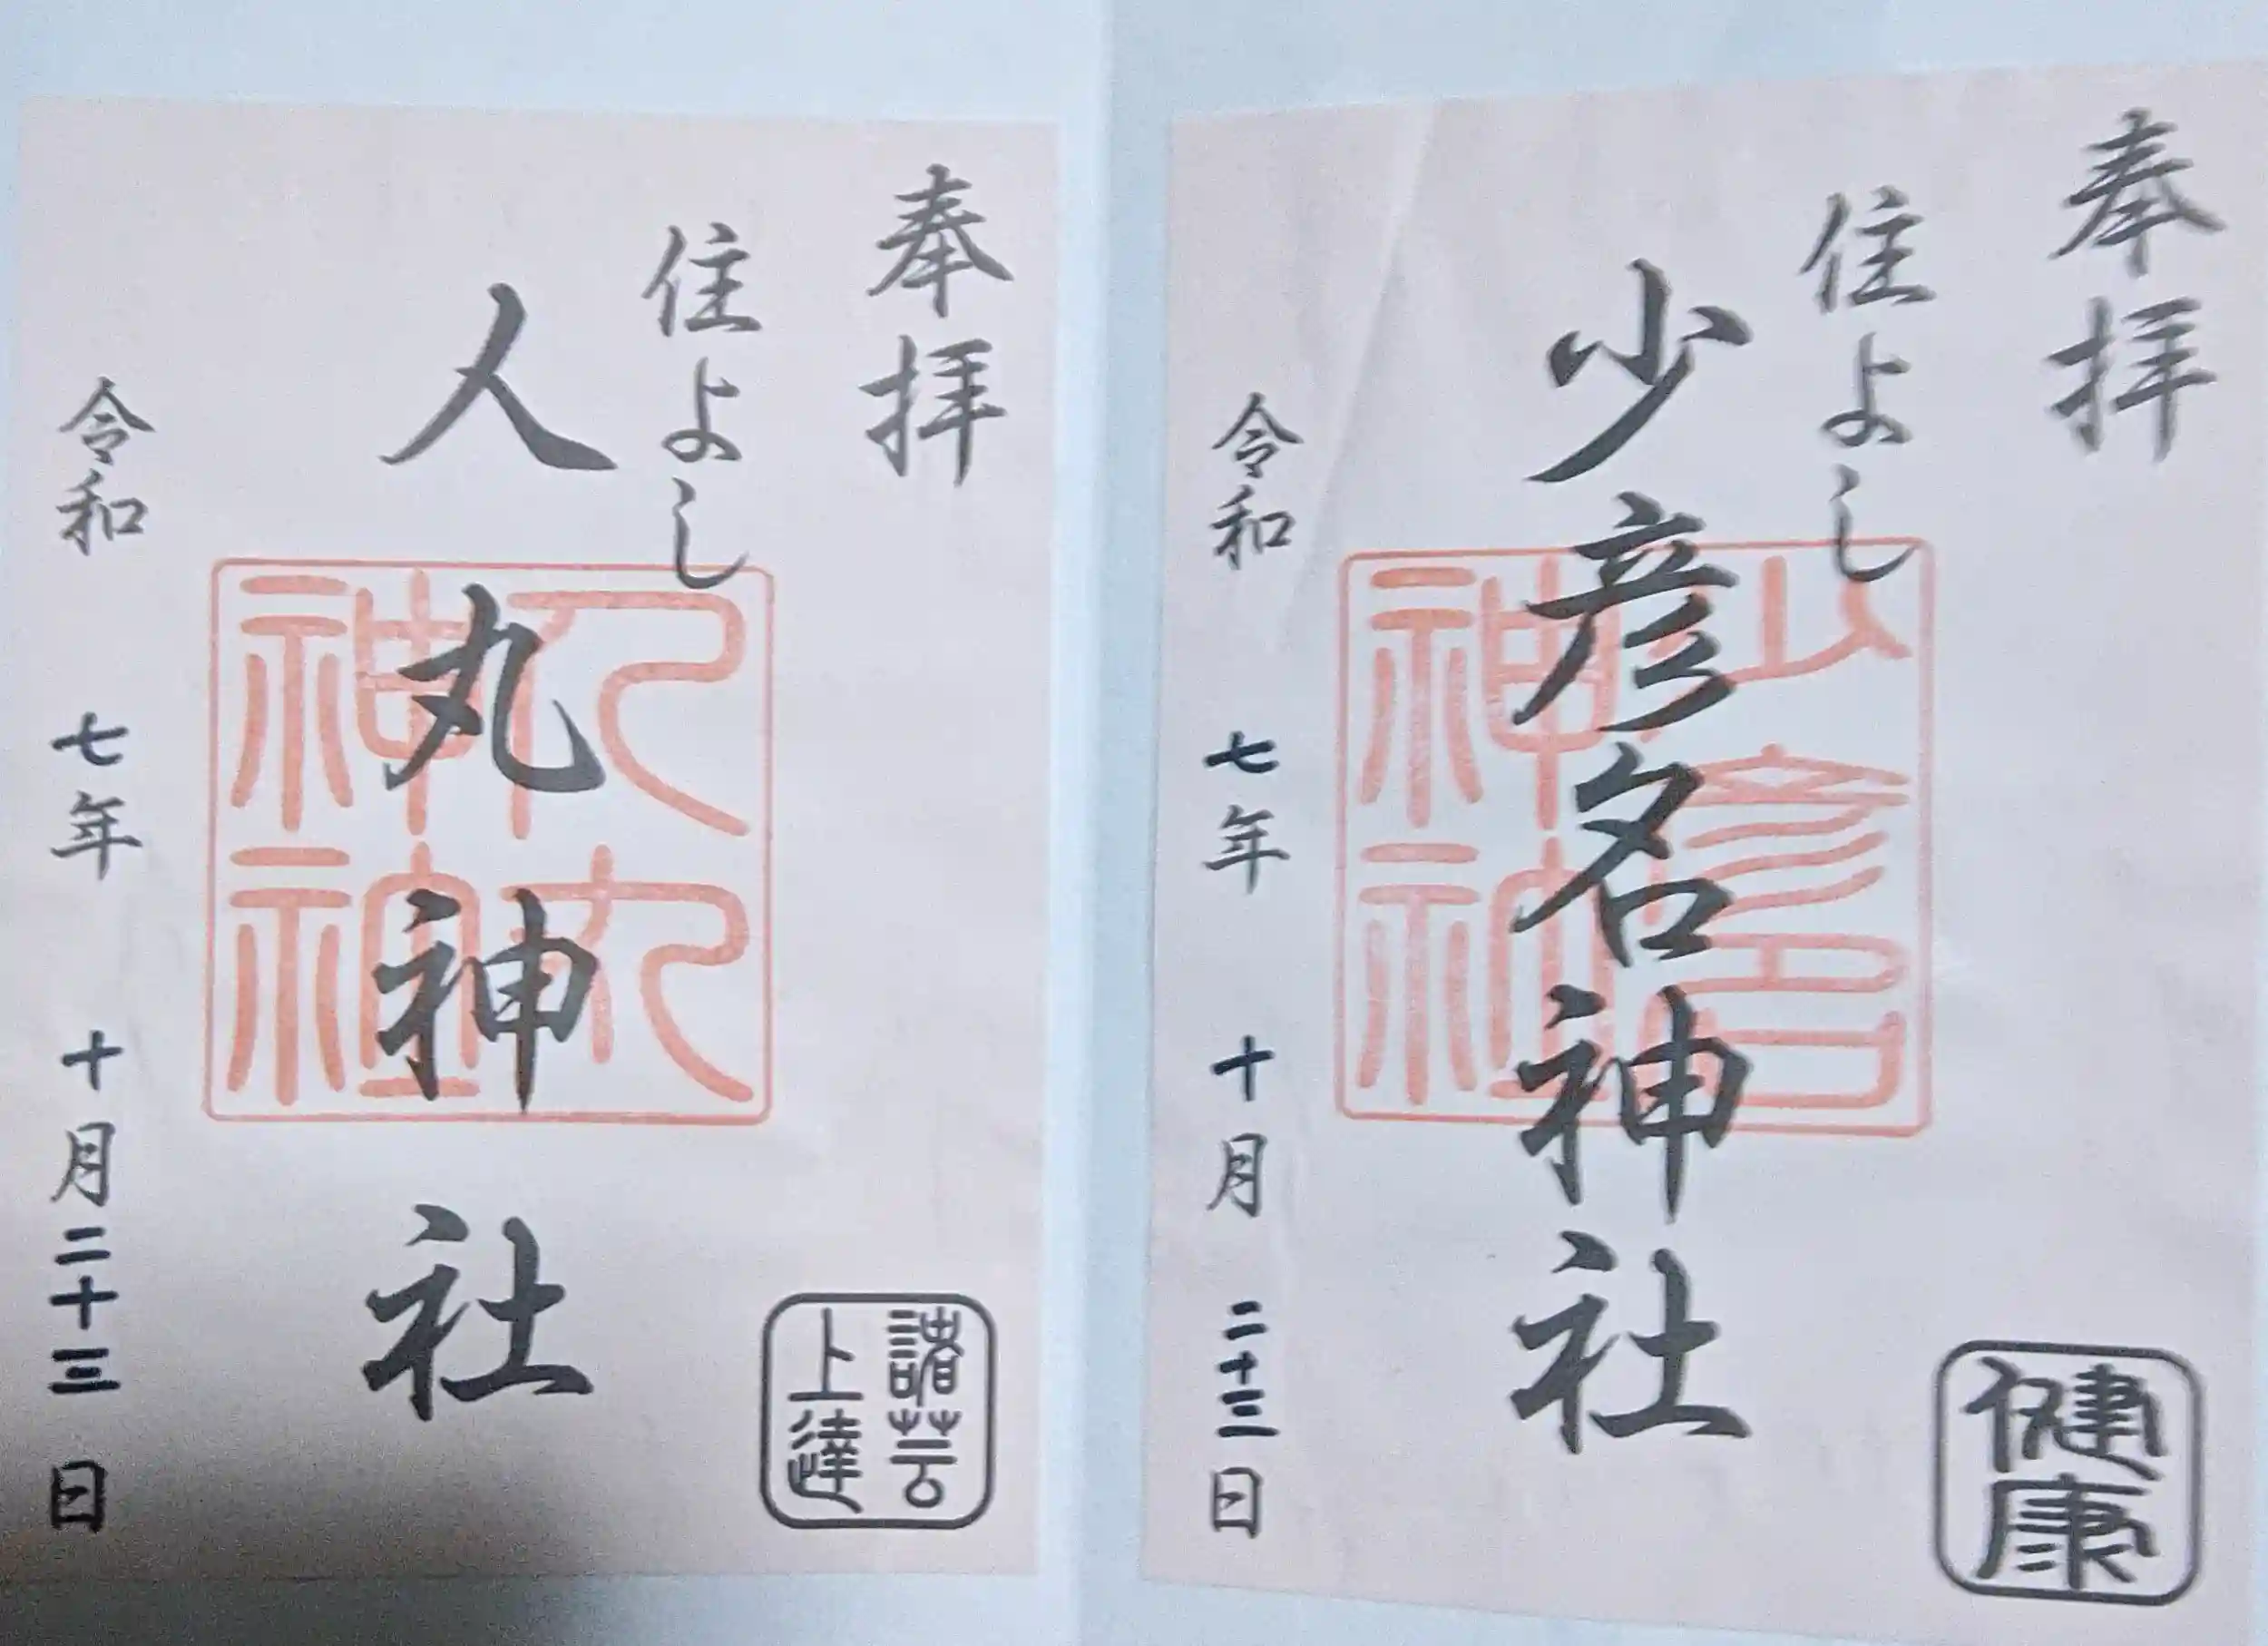 奉拝
住よし
少彦名神社
令和七年十月二十三日
少彦名
神社
健康
奉拝
住よし
人丸神社
令和七年十月二十三日
人丸
神社
諸芸
上達